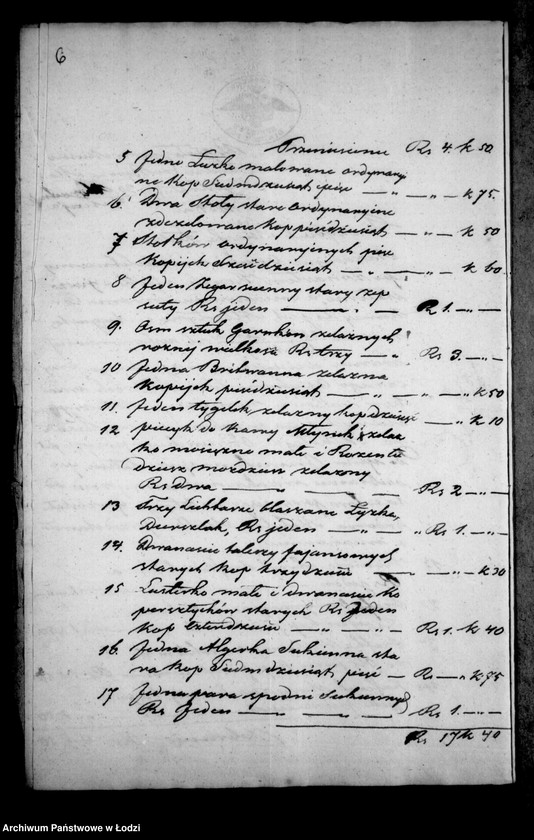 6
Przeniesienie Rs 4. k 50
5 Jedne Łuzko malowane ordynaryi
ne kop Siedmdziesiąt pięć — „ — „ — k 75.
6. Dwa Stoły stare ordynaryine
kop pięśdziesiąt — „ — „ — k 50
7 Stołków ordynaryinych pięc
kopijek Sześdziesiąt — „ — „ — k 60
8 Jeden Zegar scienny stary zep
suty Rs jeden — „ — Rs 1. — „ —
9. Osm sztuk Garnków zelaznych
rozney wielkosci Rs trzy — „ Rs 3. — „ —
10 Jedna Britwanna zelazna
Kopijek pięśdziesiąt — „ — „ — „ — k 50
11. Jeden tygelek zelazny kop dziesięć — „ k 10
12 piecyk do Kawy Młynek zelaz
ko mosięzne małe i
mozdzierz zelazny
Rs dwa — „ — Rs 2 — „ —
13 Trzy Lichtarze blaszane Łyzka,
Durszlak, Rs jeden — „ — „ Rs 1. — „ —
14. Dwanascie talerzy fajansowych
starych kop trzydziesci — „ — k 30
15 Lusterko małe i dwanascie ko
persztychów starych Rs Jeden
kop czterdziesci — „ — „ — Rs 1. k 40
16. Jedna Algierka Sukienna sta
ra kop Siedmdziesiąt pięć — Rs — „ — k 75
17 Jedna para spodni Sukiennych
Rs Jeden — „ — „ — Rs 1. — „ —
Rs 17 k 40
Archiwum Państwowe w Łodzi